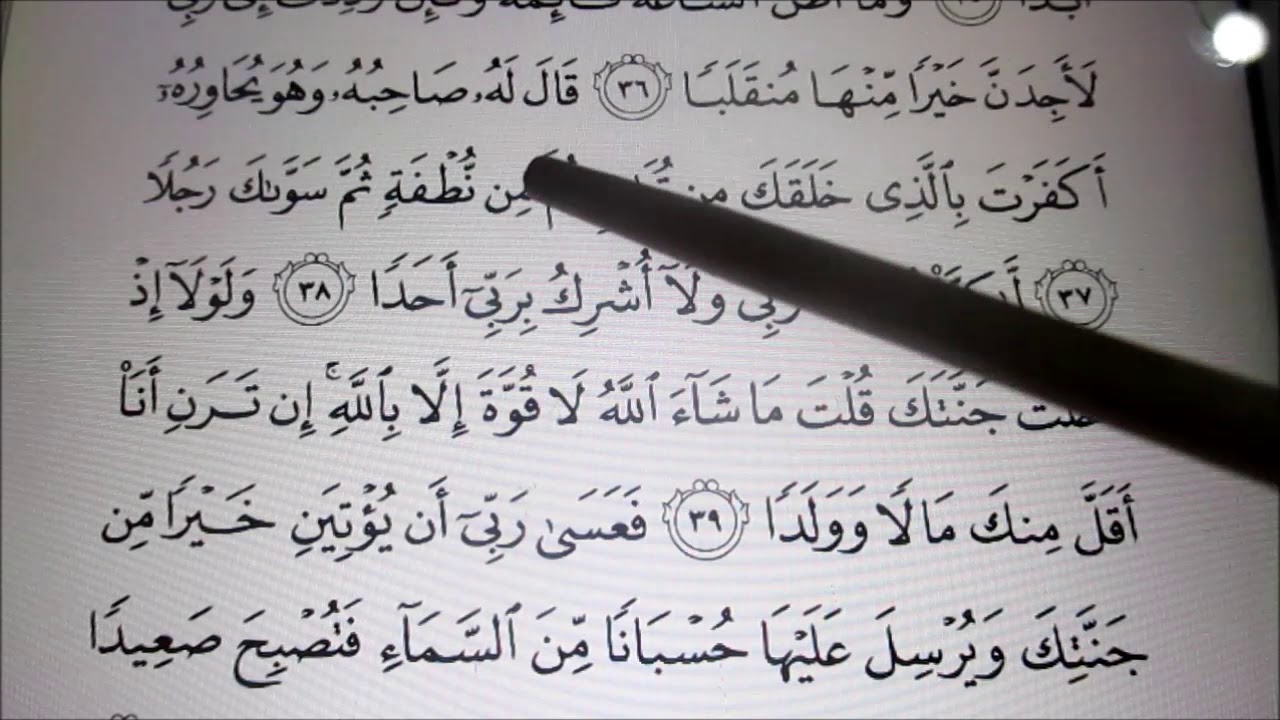 لَأَجِدَنَّ خَيْرًا مِّنْهَا مُنقَلَبًا ٣٦ قَالَ لَهُۥ صَاحِبُهُۥ وَهُوَ يُحَاوِرُهُۥٓ
أَكَفَرْتَ بِٱلَّذِى خَلَقَكَ مِن مِن نُّطْفَةٍ ثُمَّ سَوَّىٰكَ رَجُلًا
٣٧ رَبِّى وَلَآ أُشْرِكُ بِرَبِّىٓ أَحَدًا ٣٨ وَلَوْلَآ إِذْ
جَنَّتَكَ قُلْتَ مَا شَآءَ ٱللَّهُ لَا قُوَّةَ إِلَّا بِٱللَّهِ ۚ إِن تَرَنِ أَنَا۠
أَقَلَّ مِنكَ مَالًا وَوَلَدًا ٣٩ فَعَسَىٰ رَبِّىٓ أَن يُؤْتِيَنِ خَيْرًا مِّن
جَنَّتِكَ وَيُرْسِلَ عَلَيْهَا حُسْبَانًا مِّنَ ٱلسَّمَآءِ فَتُصْبِحَ صَعِيدًا